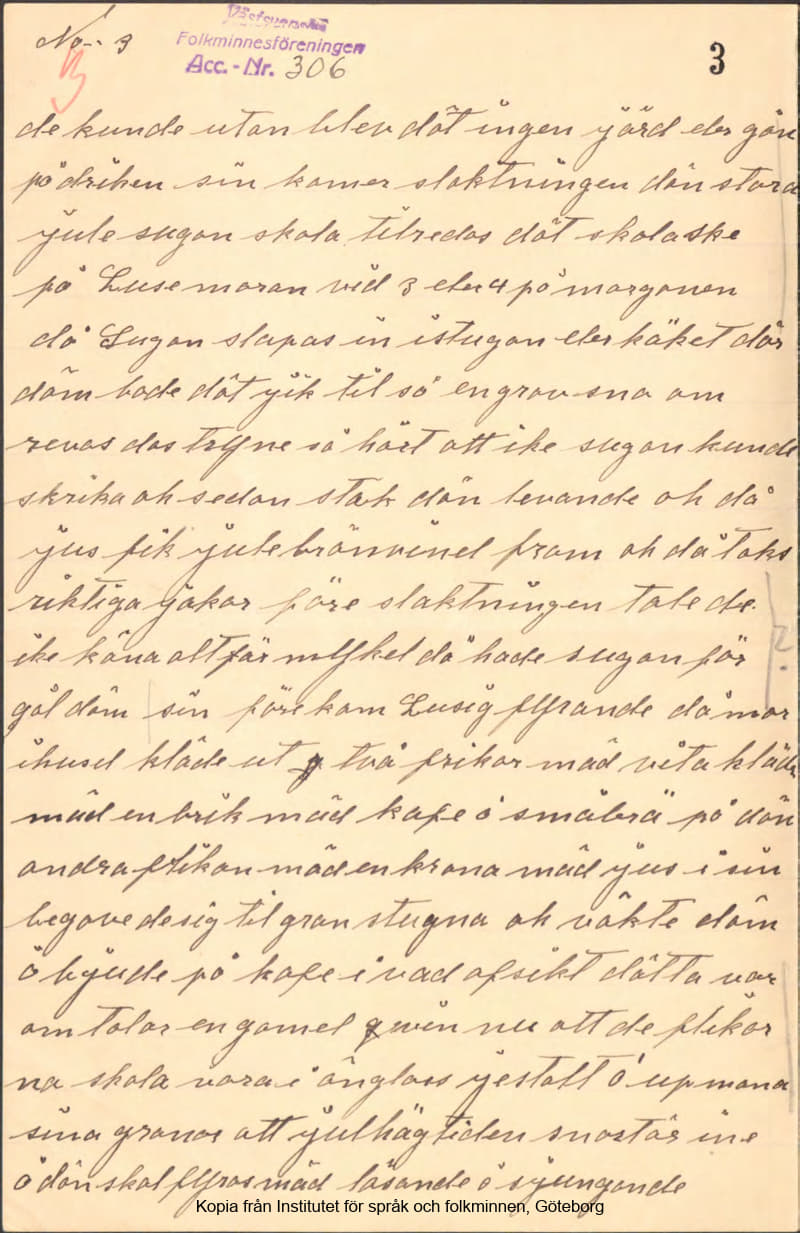 No. 3
Västsvenska
Folkminnesföreningen
Acc.-Nr. 306
3
3
de kunde utan blev dät ingen järd eler gån
på driken sin komer slaktningen dän stora
jule sugan skola tilredas dät skola ske
på Luse moran vid 3 eler 4 på morgonen
då Sugan slapas in i stugan eler käket där
däm bade dät jik til så en grov sna om
revas das tryne så hårt att ike sugan kunde
skrika oh sedan stak dän levande oh då
jus fik julebränvinel fram oh då toks
riktiga jakar före slaktningen tale de
ike käna alt får mykel då hade sugan för
gål däm sin före kom Lusig fyrande då mor
i husel kläde ut två frikor mäd vita kläder
mäd en brik mäd kafe å småbrä på dän
andra flikan mäd en krona mäd jus i sin
begove de sig til gran stugna oh väkte däm
å bjude på kafe i vad afsikt dätta var
om talar en gamel qvin nu att de flikor
na skola vara i änglass jestalt å upmana
sina granar att julhägtiden snostår ine
å dän skal fyras mäd läsande å sjungande
Kopia från Institutet för språk och folkminnen, Göteborg